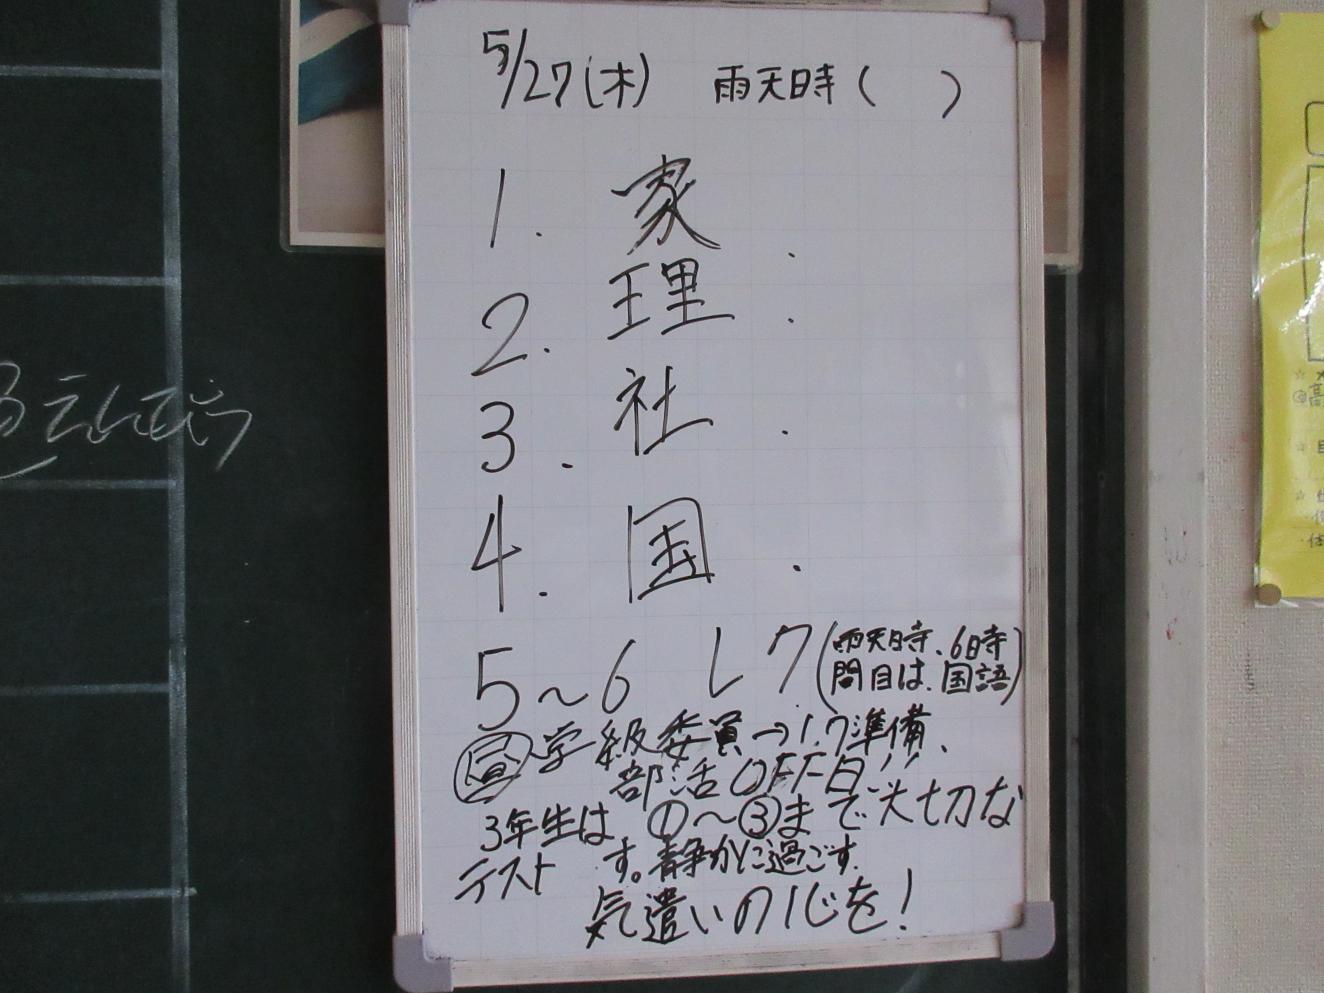 5/27(木) 雨天時( )
1. 家 .
2. 理 .
3. 社 .
4. 国 .
5〜6 レク(雨天時、6時
間目は、国語)
昼 学級委員→レク準備、
部活OFF日!!
3年生は ①〜③まで大切な
テスト す。静かに過ごす
気遣いの心を!